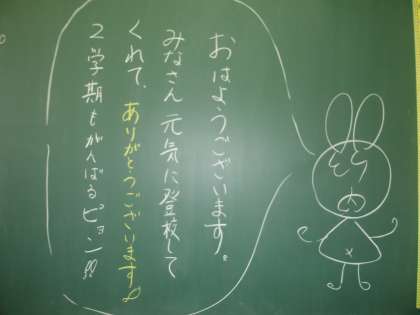 おはようございます。
みなさん元気に登校して
くれて、ありがとうございます
2学期もがんばるピョン!!